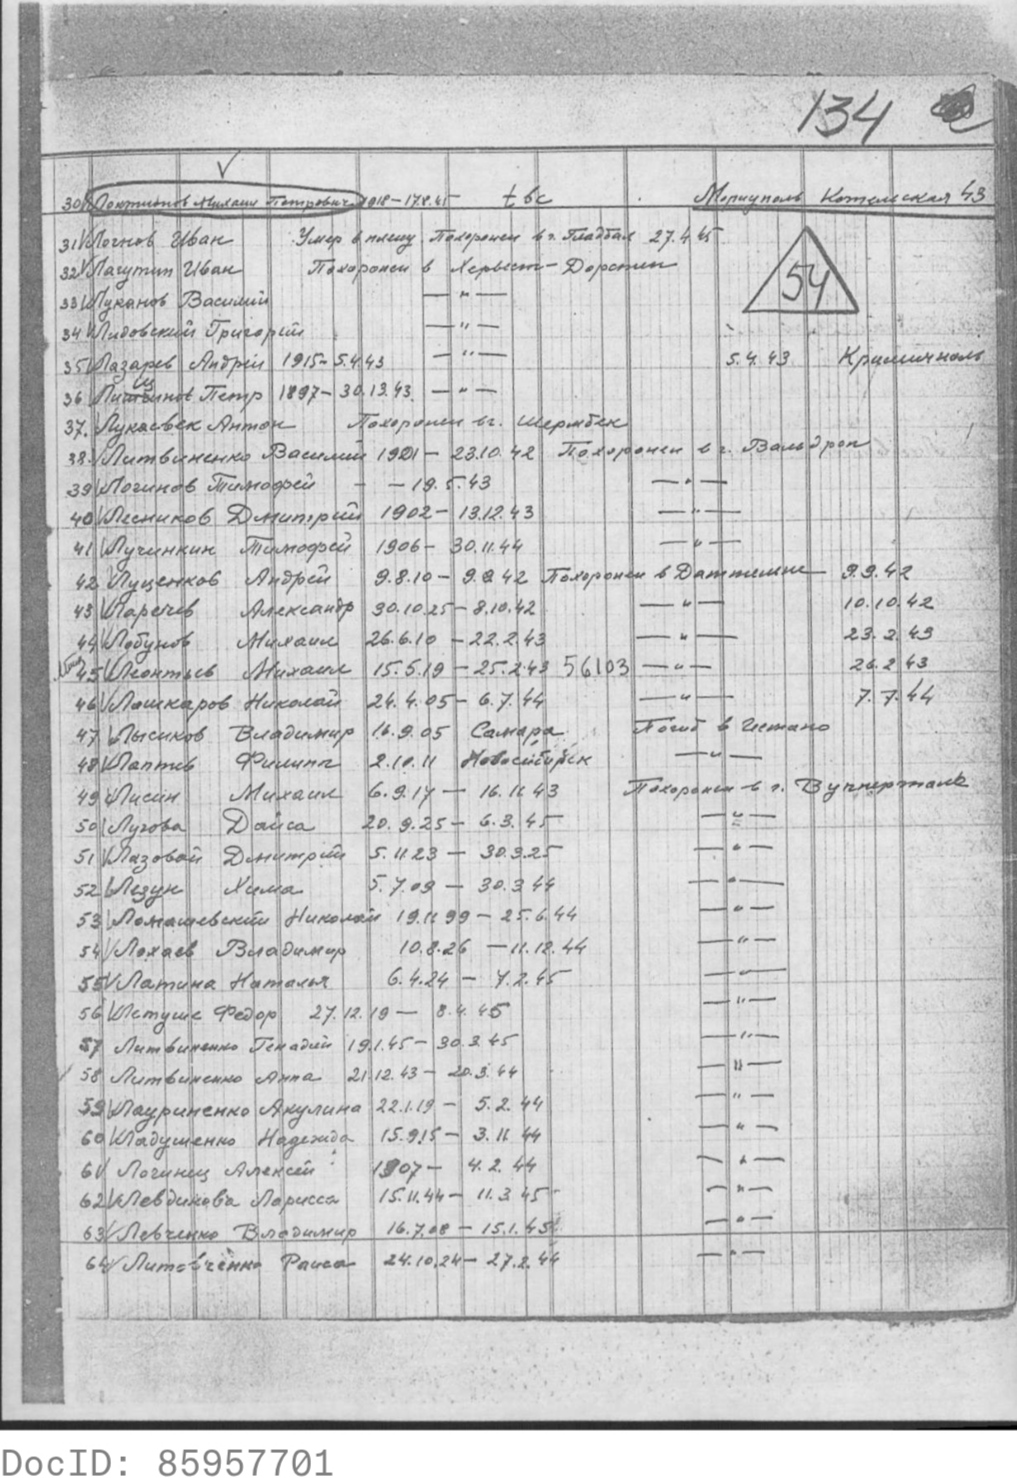 134
30 Михаил Петрович 1918-17.8.45 tbc Мариуполь 43
31 Логнов Иван Умер в плену Похоронен в г. Гладбах 27.4.45
32 Лагутин Иван Похоронен в Хервест-Дорстен
54
33 Луканов Василий — " —
34 Лидовский Григорий — " —
35 Лазарев Андрей 1915-5.4.43 — " — 5.4.43
36 Петр 1897-30.12.43 — " —
37. Антон Похоронен в г. Шермбек
38. Литвиненко Василий 1921 - 23.10.42 Похоронен в г. Вальдроп
39 Логинов Тимофей - - 19.5.43 — " —
40 Лесников Дмитрий 1902 - 13.12.43 — " —
41 Лучинкин Тимофей 1906 - 30.11.44 — " —
42 Луценков Андрей 9.8.10 - 9.9.42 Похоронен в Даттельне 9.9.42
43 Ларечев Александр 30.10.25 - 8.10.42 — " — 10.10.42
44 Лобунов Михаил 26.6.10 - 22.2.43 — " — 23.2.43
45 Леонтьев Михаил 15.5.19 - 25.2.43 56103 — " — 26.2.43
46 Лошкаров Николай 24.4.05 - 6.7.44 — " — 7.7.44
47 Лысиков Владимир 16.9.05 Самара Погиб в
48 Лаптев Филипп 2.10.11 Новосибирск — " —
49 Лисин Михаил 6.9.17 — 16.11.43 Похоронен в г. Вупперталь
50 Лугова 20.9.25 - 6.3.45 — " —
51 Лазовой Дмитрий 5.11.23 — 30.3.25 — " —
52 Лезун Хима 5.7.09 — 30.3.44 — " —
53 Ломашевский Николай 19.11.99 - 25.6.44 — " —
54 Лохаев Владимир 10.8.26 - 11.12.44 — " —
55 Латина Наталья 6.4.24 - 7.2.45 — " —
56 Федор 27.12.19 — 8.4.45 — " —
57 Литвиненко Генадий 19.1.45 - 30.3.45 — " —
58 Литвиненко Анна 21.12.43 - 20.3.44 — " —
59 Лауриненко Акулина 22.1.19 - 5.2.44 — " —
60 Ладушенко Надежда 15.9.15 - 3.11.44 — " —
61 Алексей 1907 - 4.2.44 — " —
62 Левдикова Ларисса 15.11.44 - 11.3.45 — " —
63 Левченко Владимир 16.7.08 - 15.1.45 — " —
64 Литовченко Раиса 24.10.24 - 27.2.44 — " —
DocID: 85957701